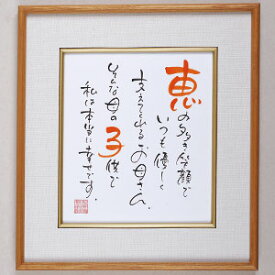 恵の多き笑顔で
いつも優しく
支えてくれるお母さん。
そんな母の子供で
私は本当に幸せです。